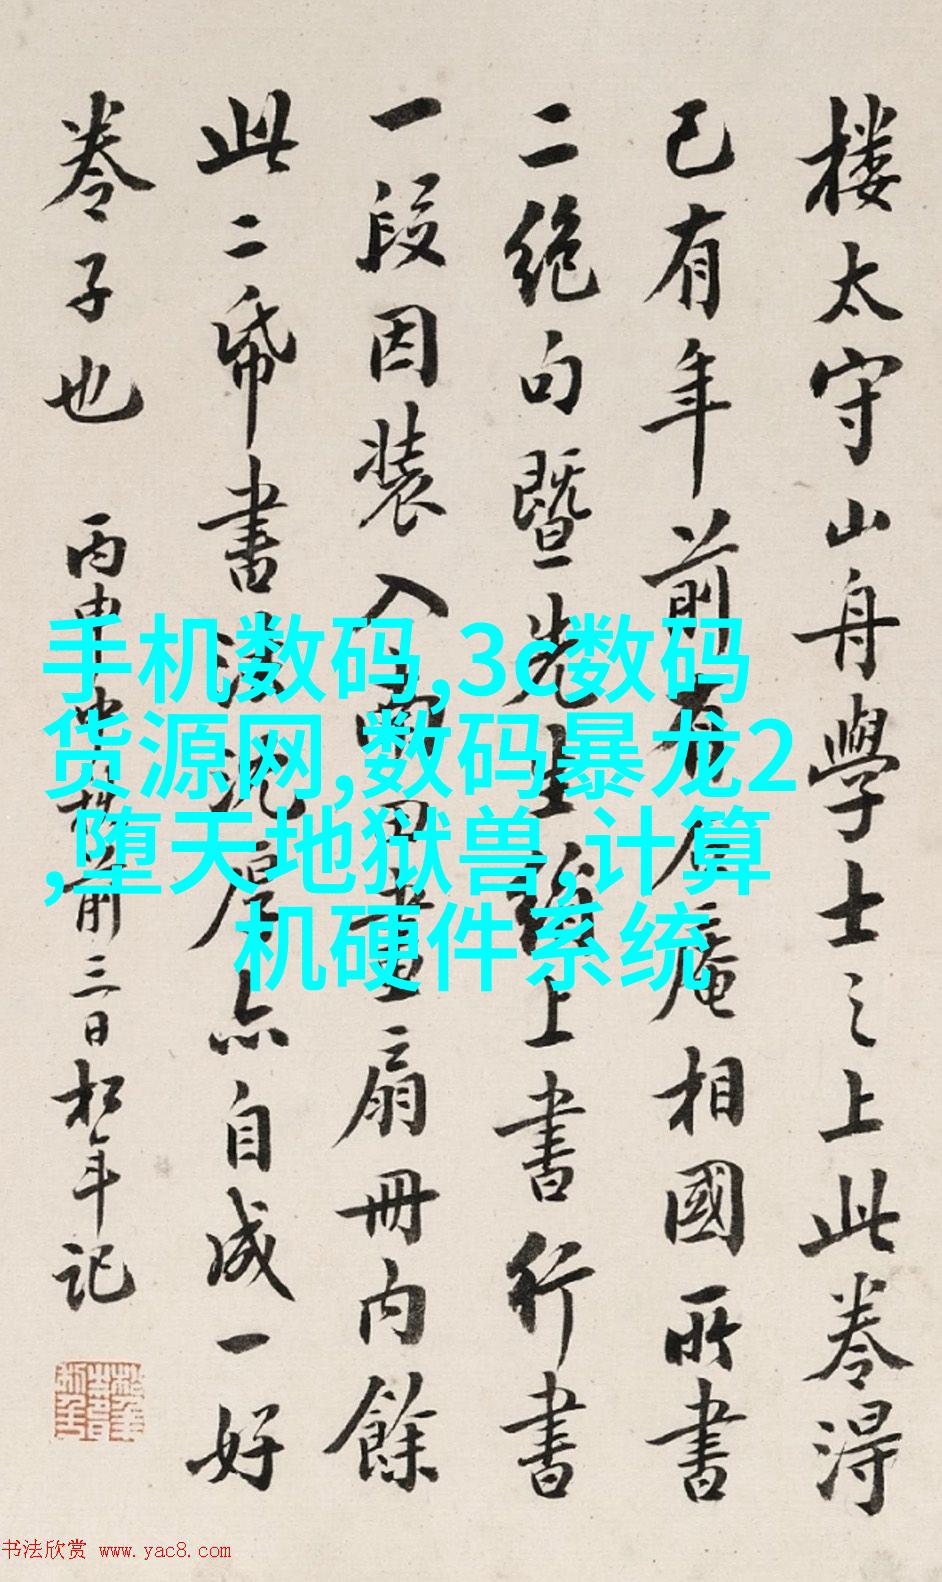 楼太守山舟學士之上此卷淂
已有年前有庵相國所書
二絶句暨先生上書行書
一段因装入扇冊内餘
此二帋書法沈厚亦自成一好
卷子也 丙申前三日松年记
手机数码,3c数码
货源网,数码暴龙2
,堕天地狱兽,计算
机硬件系统
书法欣赏 www.yac8.com